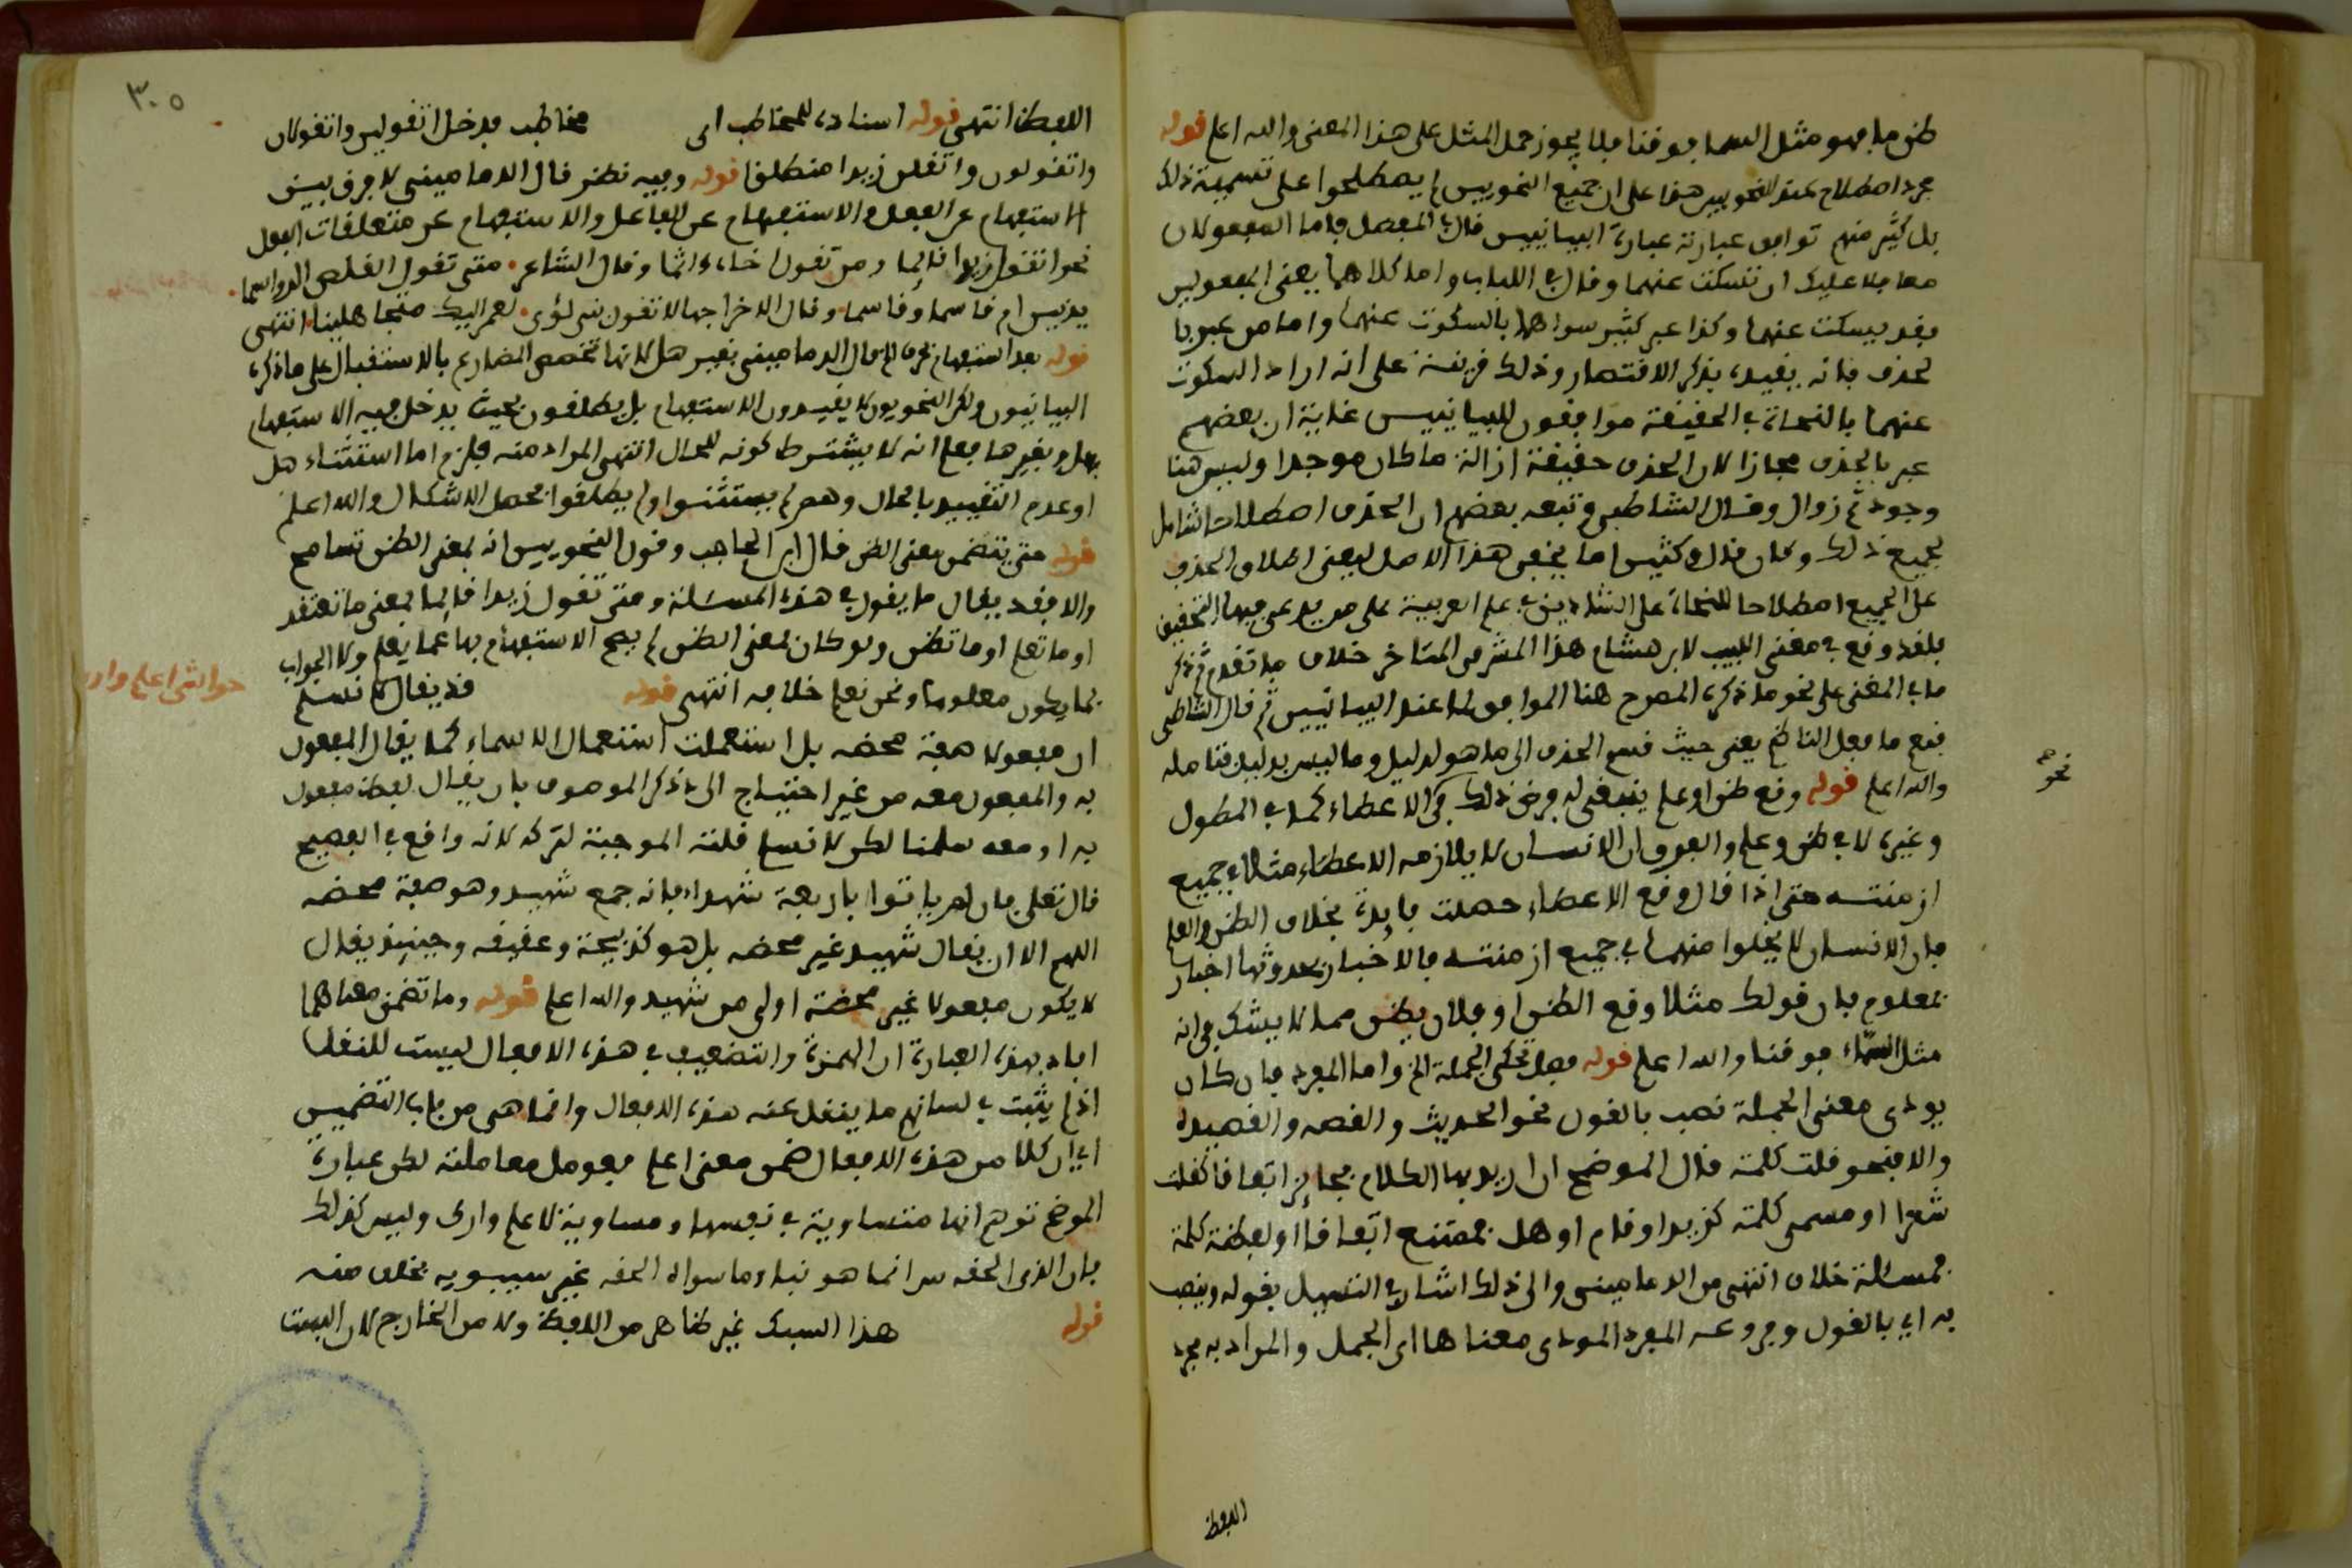 ظن ما فهو مثل السما فوقنا فلا يجوز حمل المثل على هذا المعنى والله اعلم قوله
مجرد اصطلاح عند النحويين هذا على ان جميع النحويين لم يصطلحوا على تسمية ذلك
بل كثير منهم توافق عبارته عبارة البيانيين قال في المفصل واما المفعولان
معا فلا عليك ان تسكت عنهما وقال في اللباب واما كلاهما يعنى المفعولين
فقد يسكت عنهما وكذا عبر كثير سواهما بالسكوت عنهما واما من عبر با
لحذف فانه يقيده بذكر الاقتصار وذلك قرينة على انه اراد السكوت
عنهما فالنحاة في الحقيقة موافقون للبيانيين غاية ان بعضهم
عبر بالحذف مجازا لان الحذف حقيقة ازالة ما كان موجدا وليس هنا
وجود ثم زوال وقال الشاطبي وتبعه بعضهم ان الحذف اصطلاح الشامل
لجميع ذلك وكان قال وكثيرا ما يخفى هذا الاصل يعنى اطلاق الحذف
على الجميع اصطلاحا للنحاة على الشادين في علم العربية على من يدعى فيها التحقيق
فلقد وقع في مغنى اللبيب لابن هشام هذا المشرقى المتاخر خلاف ما تقدم ثم ذكر
ما في المغنى على نحو ما ذكره المصرح هنا الموافق لما عند البيانيين ثم قال الشاطبي
فقع ما فعل الناظم يعنى حيث قسم الحذف الى ما هو لدليل وما ليس بدليل فتامله
والله اعلم قوله وقع ظن او علم ينبغى له فرض ذلك في الاعطاء كما في المطول
وغيره لا في ظن وعلم والفرق ان الانسان لا يلازمه الاعطاء مثلا في جميع
ازمنته حتى اذا قال وقع الاعطاء حصلت فايدة بخلاف الظن والعلم
فان الانسان لا يخلوا منهما في جميع ازمنته فالاخبار بحدوثها اخبار
بمعلوم فان قولك مثلا وقع الظن او فلان يظن مما لا يشك في انه
مثل السماء فوقنا والله اعلم قوله فعل تحكى الجملة الخ واما المفرد فان كان
يودى معنى الجملة نصب بالقول نحو الحديث والقصه والقصيدة
والا فنحو قلت كلمة قال الموضح ان اريد بها الكلام فجائز اتفاقا كقلت
شعرا او مسمى كلمة كزيدا وقام او هل بممتنع اتفاقا او لفظة كلمة
فمسئلة خلاف انتهى من الدمامينى والى ذلك اشار في التسهيل بقوله وينصب
به اي بالقول وفروعه المفرد المودى معناها اى الجمل والمراد به مجرد
نحوهم
اللفظ
٣٠٥
اللفظ انتهى قوله اسناده للمخاطب اى مخاطب فدخل اتقولين واتقولان
واتقولون واتقلن زيدا منطلقا قوله وفيه نظر قال الدمامينى لا فرق بين
الاستفهام عن الفعل والاستفهام عن الفاعل والاستفهام عن متعلقات الفعل
نحو اتقول زيدا قائما ومن تقول خاء اثما وقال الشاعر متى تقول القلص الرواسما
يدنين ام قاسم وقاسما وقال الاخر اجهالا تقول بنى لؤى لعمر ابيك ام متجاهلينا انتهى
قوله بعد استفهام بحرف الخ قال الدمامينى بغير هل لانها تخصص المضارع بالاستقبال على ما ذكره
البيانيون ولكن النحويون لا يقيدون الاستفهام بل يطلقون بحيث يدخل فيه الاستفهام
بهل وبغيرها فعلم انه لا يشترط كونه للحال انتهى المراد منه فلزم اما استثناء هل
او عدم التقييد بالحال وهم لم يستثنوا ولم يطلقوا فحصل الاشكال والله اعلم
قوله حتى يتضمن معنى الظن قال ابن الحاجب وقول النحويين انه بمعنى الظن تسامح
والا فقد يقال ما يقول في هذه المسئلة ومتى تقول زيدا قائما بمعنى ما تعتقد
او ما تعلم او ما تظن ولو كان بمعنى الظن لم يصح الاستفهام بها عما يعلم ولا الجواب
بما يكون معلوما ونحن نعلم خلافه انتهى قوله قد يقال لا نسلم
حواشى اعلم وارى
ان مفعولا صفة محضه بل استعملت استعمال الاسماء كما يقال المفعول
به والمفعول معه من غير احتياج الى ذكر الموصوف بان يقال لفظ مفعول
به او معه سلمنا لكن لا نسلم قلته الموجبة لتركه لانه واقع في الفصيح
قال تعلى فان لم ياتوا باربعة شهداء فانه جمع شهيد وهو صفة محضه
اللهم الا ان يقال شهيد غير محضه بل هو كذبيحة وعقيقه وحينئذ يقال
لا يكون مفعولا غير محضة اولى من شهيد والله اعلم قوله وما تضمن معناهما
افاد بهذه العبارة ان الهمزة والتضعيف في هذه الافعال ليست للنقل
اذ لم يثبت في لسانهم ما ينقل عنه هذه الافعال وانما هى من باب التضمين
اي ان كلا من هذه الافعال ضمن معنى اعلم فعومل معاملته لكن عبارة
الموضح توهم انها متساوية في نفسها ومساوية لاعلم وارى وليس كذلك
فان الذى الحقه س انما هو نبا وما سواه الحقه غير سيبويه بخلاف منه
قوله هذا السبك غير ظاهر من اللفظ ولا من الخارج لان البيت